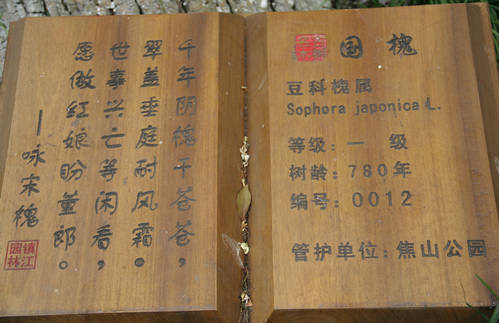 千年阴槐干苍苍，
翠盖垂庭耐风霜。
世事兴亡等闲看，
愿做红娘盼董郎。
—咏宋槐
镇江
园林
国槐
豆科槐属
Sophora japonica L.
等级：一 级
树龄：780年
编号：0012
管护单位：焦山公园